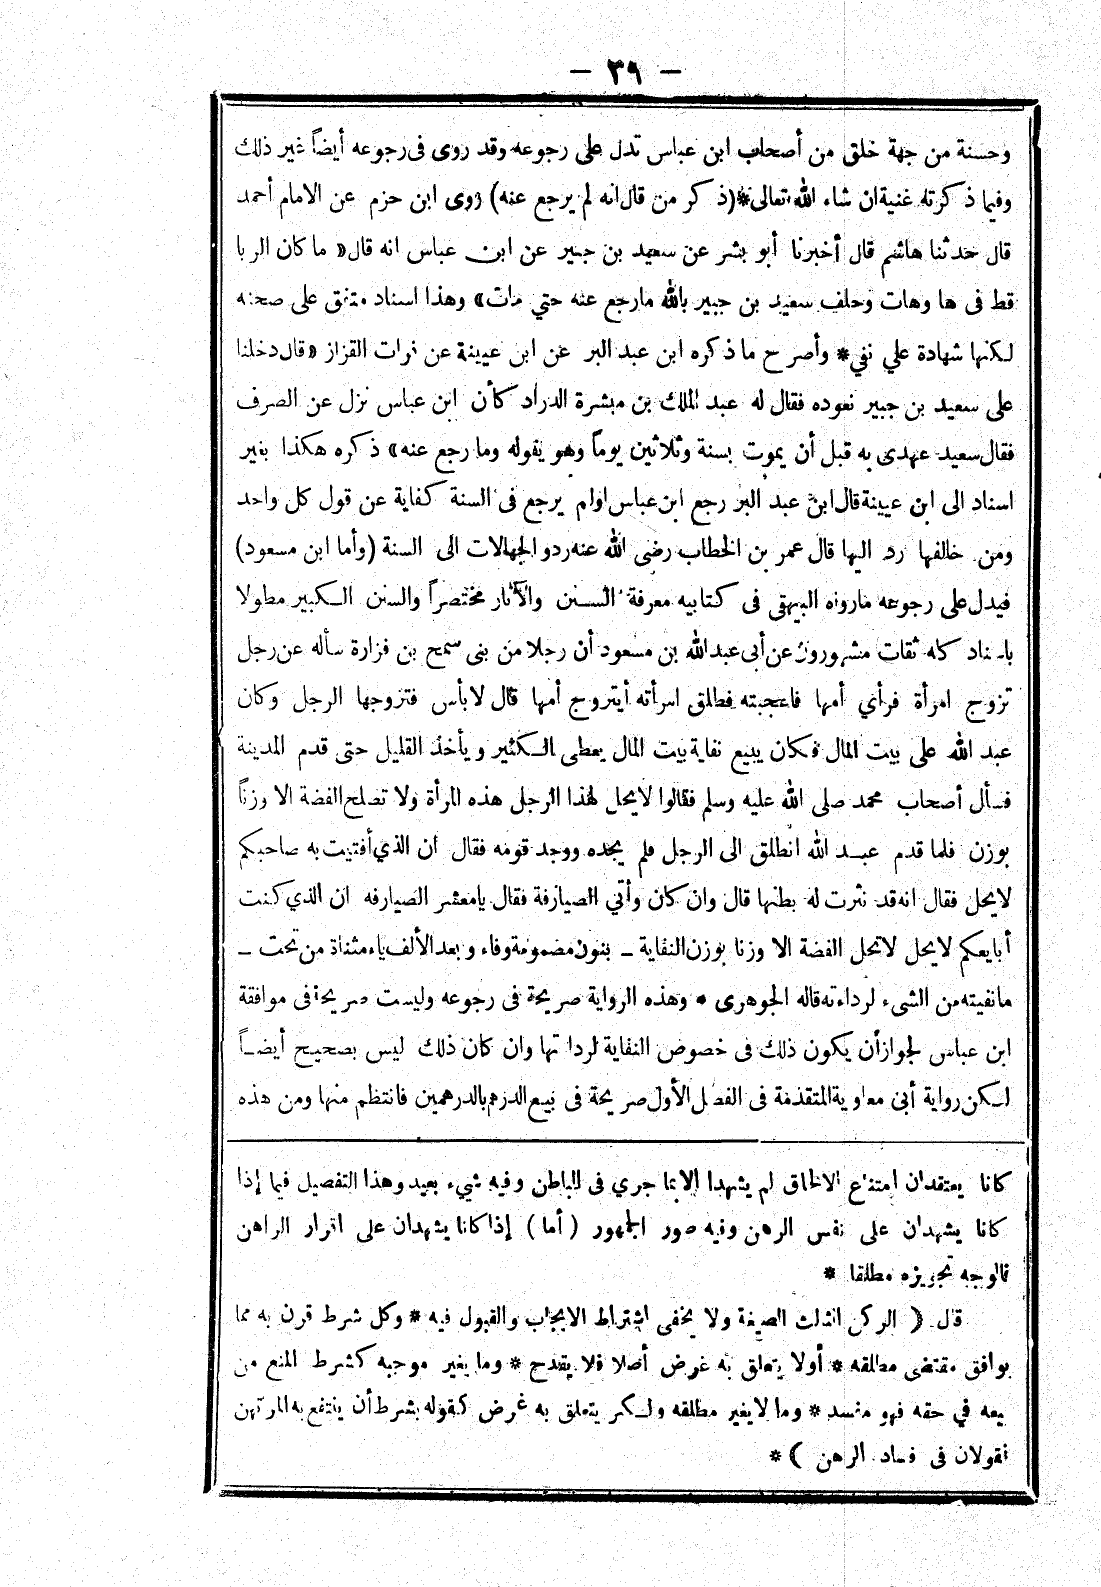 — ٣٩ —
وحسنة من جهة خلق من أصحاب ابن عباس تدل على رجوعه وقد روى فى رجوعه أيضاً غير ذلك
وفيما ذكرته غنية ان شاء الله تعالى * (ذكر من قال انه لم يرجع عنه) روى ابن حزم عن الامام أحمد
قال حدثنا هاشم قال أخبرنا أبو بشر عن سعيد بن جبير عن ابن عباس انه قال « ما كان الربا
قط فى ها وهات وحلف سعيد بن جبير بالله مارجع عنه حتي مات» وهذا اسناد متفق على صحته
لكنها شهادة علي نفي * وأصرح ما ذكره ابن عبد البر عن ابن عيينة عن فرات القزاز «قال دخلنا
على سعيد بن جبير نعوده فقال له عبد الملك بن ميسرة الدراد كأن ابن عباس نزل عن الصرف
فقال سعيد عهدى به قبل أن يموت بسنة وثلاثين يوماً وهو يقوله وما رجع عنه» ذكره هكذا بغير
اسناد الى ابن عيينة قال ابن عبد البر رجع ابن عباس اولم يرجع فى السنة كفاية عن قول كل واحد
ومن خالفها رد اليها قال عمر بن الخطاب رضى الله عنه ردو الجهالات الى السنة (وأما ابن مسعود)
فيدل على رجوعه مارواه البيهقى فى كتابيه معرفة السنن والآثار مختصراً والسنن الكبير مطولا
باسناد كله ثقات مشهورون عن أبى عبد الله بن مسعود أن رجلا من بنى سمح بن فزارة سأله عن رجل
تزوج امرأة فرأي أمها فاعجبته فطلق امرأته أيتزوج أمها قال لا بأس فتزوجها الرجل وكان
عبد الله على بيت المال فكان يبيع نفاية بيت المال يعطى الكثير ويأخذ القليل حتى قدم المدينة
فسأل أصحاب محمد صلى الله عليه وسلم فقالوا لا يحل لهذا الرجل هذه المرأة ولا تصلح الفضة الا وزناً
بوزن فلما قدم عبد الله انطلق الى الرجل فلم يجده ووجد قومه فقال ان الذي أفتيت به صاحبكم
لا يحل فقال انه قد نثرت له بطنها قال وان كان وأتي الصيارفة فقال يامعشر الصيارفه ان الذي كنت
أبايعكم لا يحل لا تحل الفضة الا وزنا بوزن النفاية ــ بنون مضمومة وفاء وبعد الألف ياء مثناة من تحت ــ
مانفيته من الشىء لرداءته قاله الجوهرى * وهذه الرواية صريحة فى رجوعه وليست صريحة فى موافقة
ابن عباس لجواز أن يكون ذلك فى خصوص النفاية لرداءتها وان كان ذلك ليس بصحيح أيضاً
لكن رواية أبى معاوية المتقدمة فى الفصل الأول صريحة فى بيع الدرهم بالدرهمين فانتظم منها ومن هذه
كانا يعتقدان امتناع الالحاق لم يشهدا الا بما جري فى الباطن وفيه شيء بعيد وهذا التفصيل فيما إذا
كانا يشهدان على نفس الرهن وفيه صور الجمهور (أما) إذا كانا يشهدان على اقرار الراهن
فالوجه تجويزه مطلقا *
قال ( الركن الثالث الصيغة ولا يخفى اشتراط الايجاب والقبول فيه * وكل شرط قرن به مما
يوافق مقتضى مطلقه * أولا يتعلق به غرض أصلا فلا يقدح * وما يغير موجبه كشرط المنع من
بيعه في حقه فهو مفسد * وما لا يغير مطلقه ولكن يتعلق به غرض كقوله بشرط أن ينتفع به المرتهن
فقولان فى فساد الرهن ) *